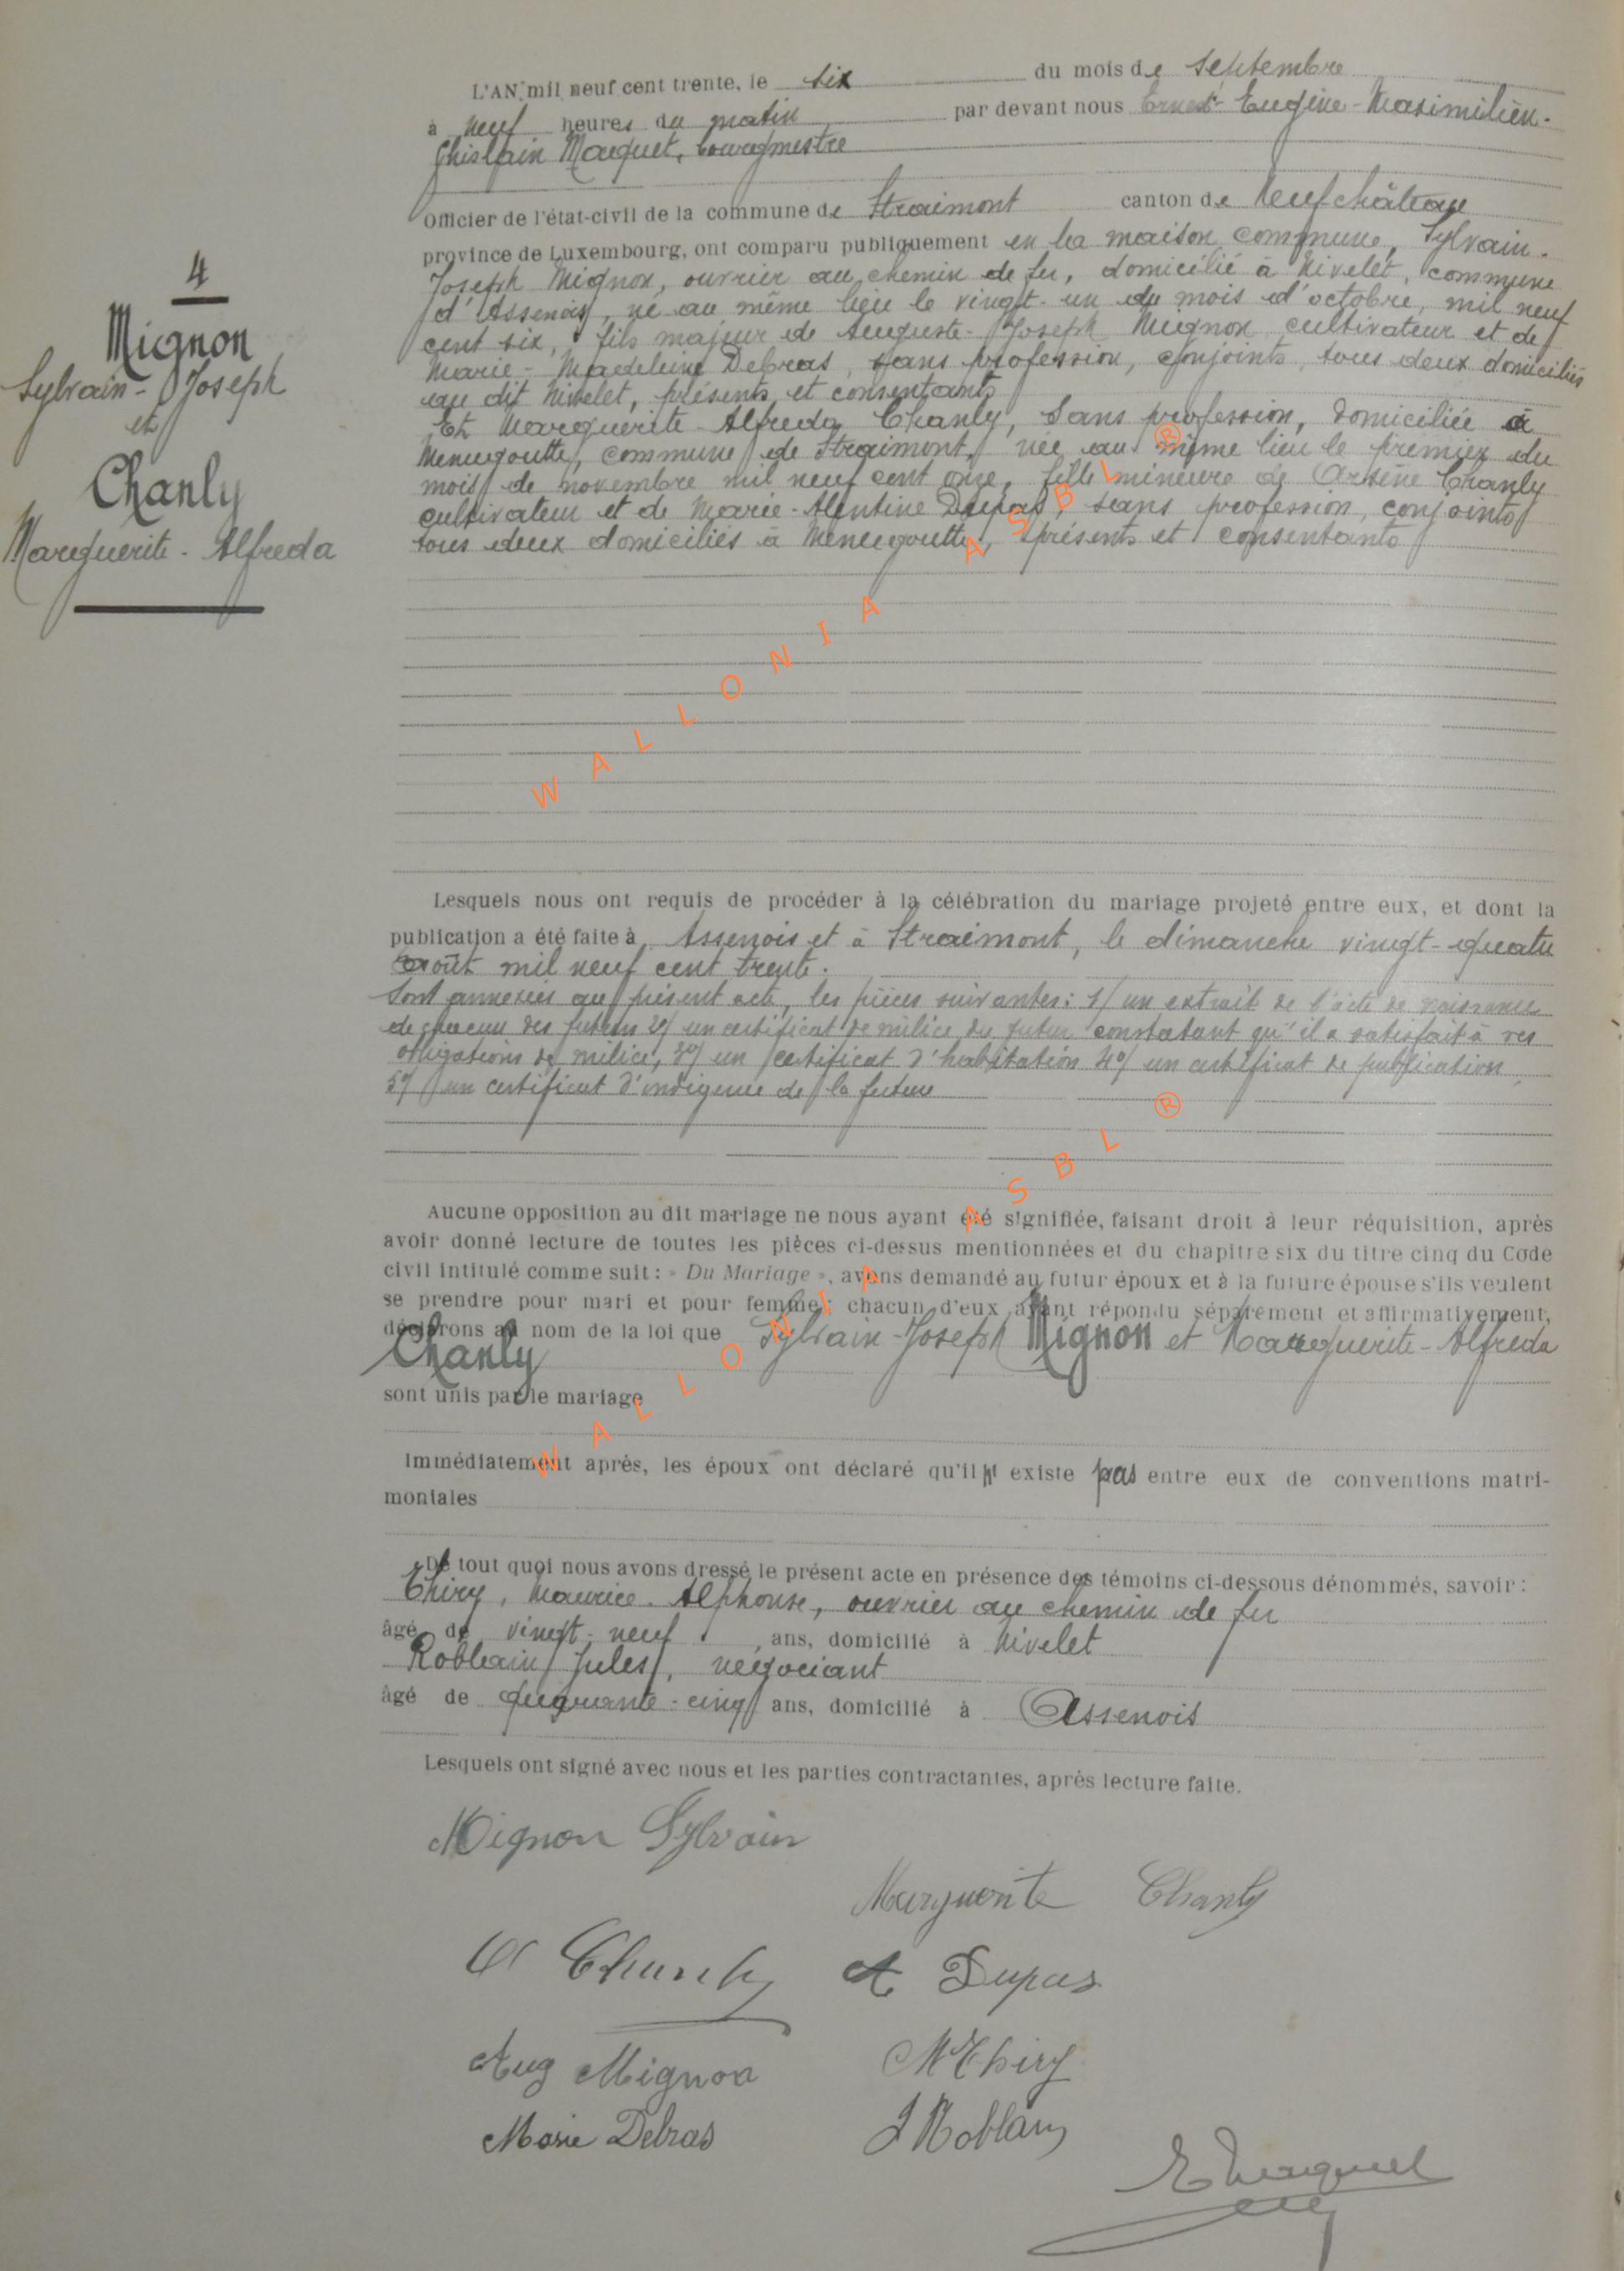 4
Mignon
Sylvain-Joseph
et
Chanly
Marguerite-Alfreda
L'AN mil neuf cent trente, le six du mois de septembre
à neuf heures du matin par devant nous Ernest-Eugène-Maximilien-
Ghislain Maquet, bourgmestre
Officier de l'état-civil de la commune de Straimont canton de Neufchâteau
province de Luxembourg, ont comparu publiquement en la maison commune, Sylvain-
Joseph Mignon, ouvrier au chemin de fer, domicilié à Nivelet, commune
d'Assenois, né au même lieu le vingt-un du mois d'octobre, mil neuf
cent six, fils majeur de Auguste-Joseph Mignon cultivateur et de
Marie-Madeleine Debras, sans profession, conjoints, tous deux domiciliés
au dit Nivelet, présents et consentants
Et Marguerite-Alfreda Chanly, sans profession, domiciliée à
Menugoutte, commune de Straimont, née au même lieu le premier du
mois de novembre mil neuf cent onze, fille mineure de Arsène Chanly
cultivateur et de Marie-Alentine Dupas, sans profession, conjoints
tous deux domiciliés à Menugoutte, présents et consentants
WALLONIA ASBL ®
Lesquels nous ont requis de procéder à la célébration du mariage projeté entre eux, et dont la
publication a été faite à Assenois et à Straimont, le dimanche vingt-quatre
août mil neuf cent trente.
Sont annexées au présent acte, les pièces suivantes: 1/ un extrait de l'acte de naissance
de chacun des futurs 2°/ un certificat de milice du futur constatant qu'il a satisfait à ses
obligations de milice, 3°/ un certificat d'habitation 4°/ un certificat de publication,
5°/ un certificat d'indigence de la future
Aucune opposition au dit mariage ne nous ayant été signifiée, faisant droit à leur réquisition, après
avoir donné lecture de toutes les pièces ci-dessus mentionnées et du chapitre six du titre cinq du Code
civil intitulé comme suit: « Du Mariage », avons demandé au futur époux et à la future épouse s'ils veulent
se prendre pour mari et pour femme; chacun d'eux ayant répondu séparément et affirmativement,
déclarons au nom de la loi que Sylvain-Joseph Mignon et Marguerite-Alfreda
Chanly
sont unis par le mariage
WALLONIA ASBL ®
Immédiatement après, les époux ont déclaré qu'il n' existe pas entre eux de conventions matri-
moniales
De tout quoi nous avons dressé le présent acte en présence des témoins ci-dessous dénommés, savoir:
Thiry, Maurice-Alphonse, ouvrier au chemin de fer
âgé de vingt-neuf ans, domicilié à Nivelet
Roblain Jules, négociant
âgé de cinquante-cinq ans, domicilié à Assenois
Lesquels ont signé avec nous et les parties contractantes, après lecture faite.
Mignon Sylvain
Marguerite Chanly
A Chanly A Dupas
Aug Mignon M Thiry
Marie Debras J Roblain
E Maquet